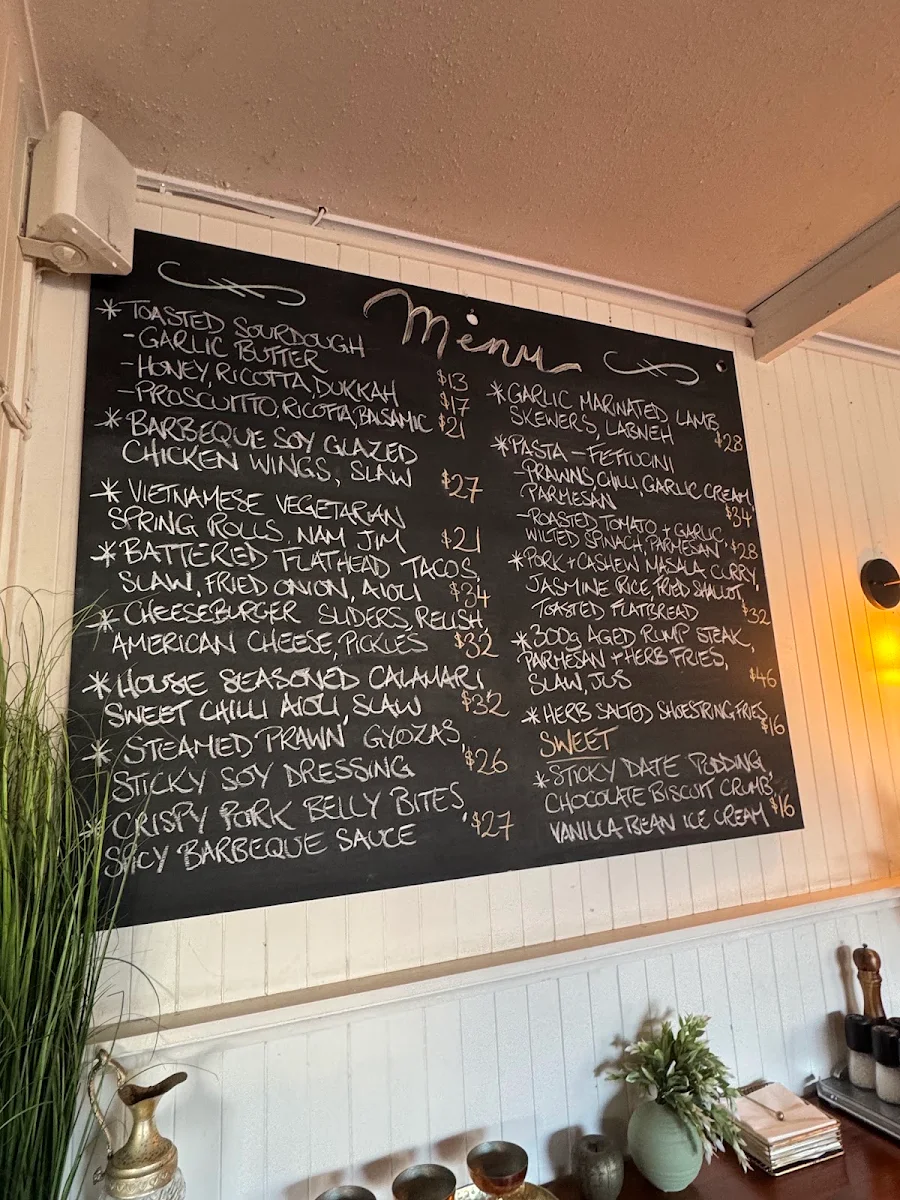 Menu
*TOASTED SOURDOUGH
-GARLIC BUTTER $13
-HONEY, RICOTTA, DUKKAH $17
-PROSCUITTO, RICOTTA, BALSAMIC $21
*BARBEQUE SOY GLAZED
CHICKEN WINGS, SLAW $27
*VIETNAMESE VEGETARIAN
SPRING ROLLS, NAM JIM $21
*BATTERED FLATHEAD TACOS,
SLAW, FRIED ONION, AIOLI $34
*CHEESEBURGER SLIDERS, RELISH,
AMERICAN CHEESE, PICKLES $32
*HOUSE SEASONED CALAMARI
SWEET CHILLI AIOLI, SLAW $32
*STEAMED PRAWN GYOZAS,
STICKY SOY DRESSING $26
*CRISPY PORK BELLY BITES,
SPICY BARBEQUE SAUCE $27
*GARLIC MARINATED LAMB
SKEWERS, LABNEH $28
*PASTA - FETTUCINI
-PRAWNS CHILLI, GARLIC CREAM,
PARMESAN $34
-ROASTED TOMATO + GARLIC,
WILTED SPINACH, PARMESAN $28
*PORK + CASHEW MASALA CURRY,
JASMINE RICE, FRIED SHALLOT,
TOASTED FLATBREAD $32
*300g AGED RUMP STEAK,
PARMESAN + HERB FRIES,
SLAW, JUS $46
*HERB SALTED SHOESTRING FRIES $16
SWEET
*STICKY DATE PUDDING,
CHOCOLATE BISCUIT CRUMB,
VANILLA BEAN ICE CREAM $16